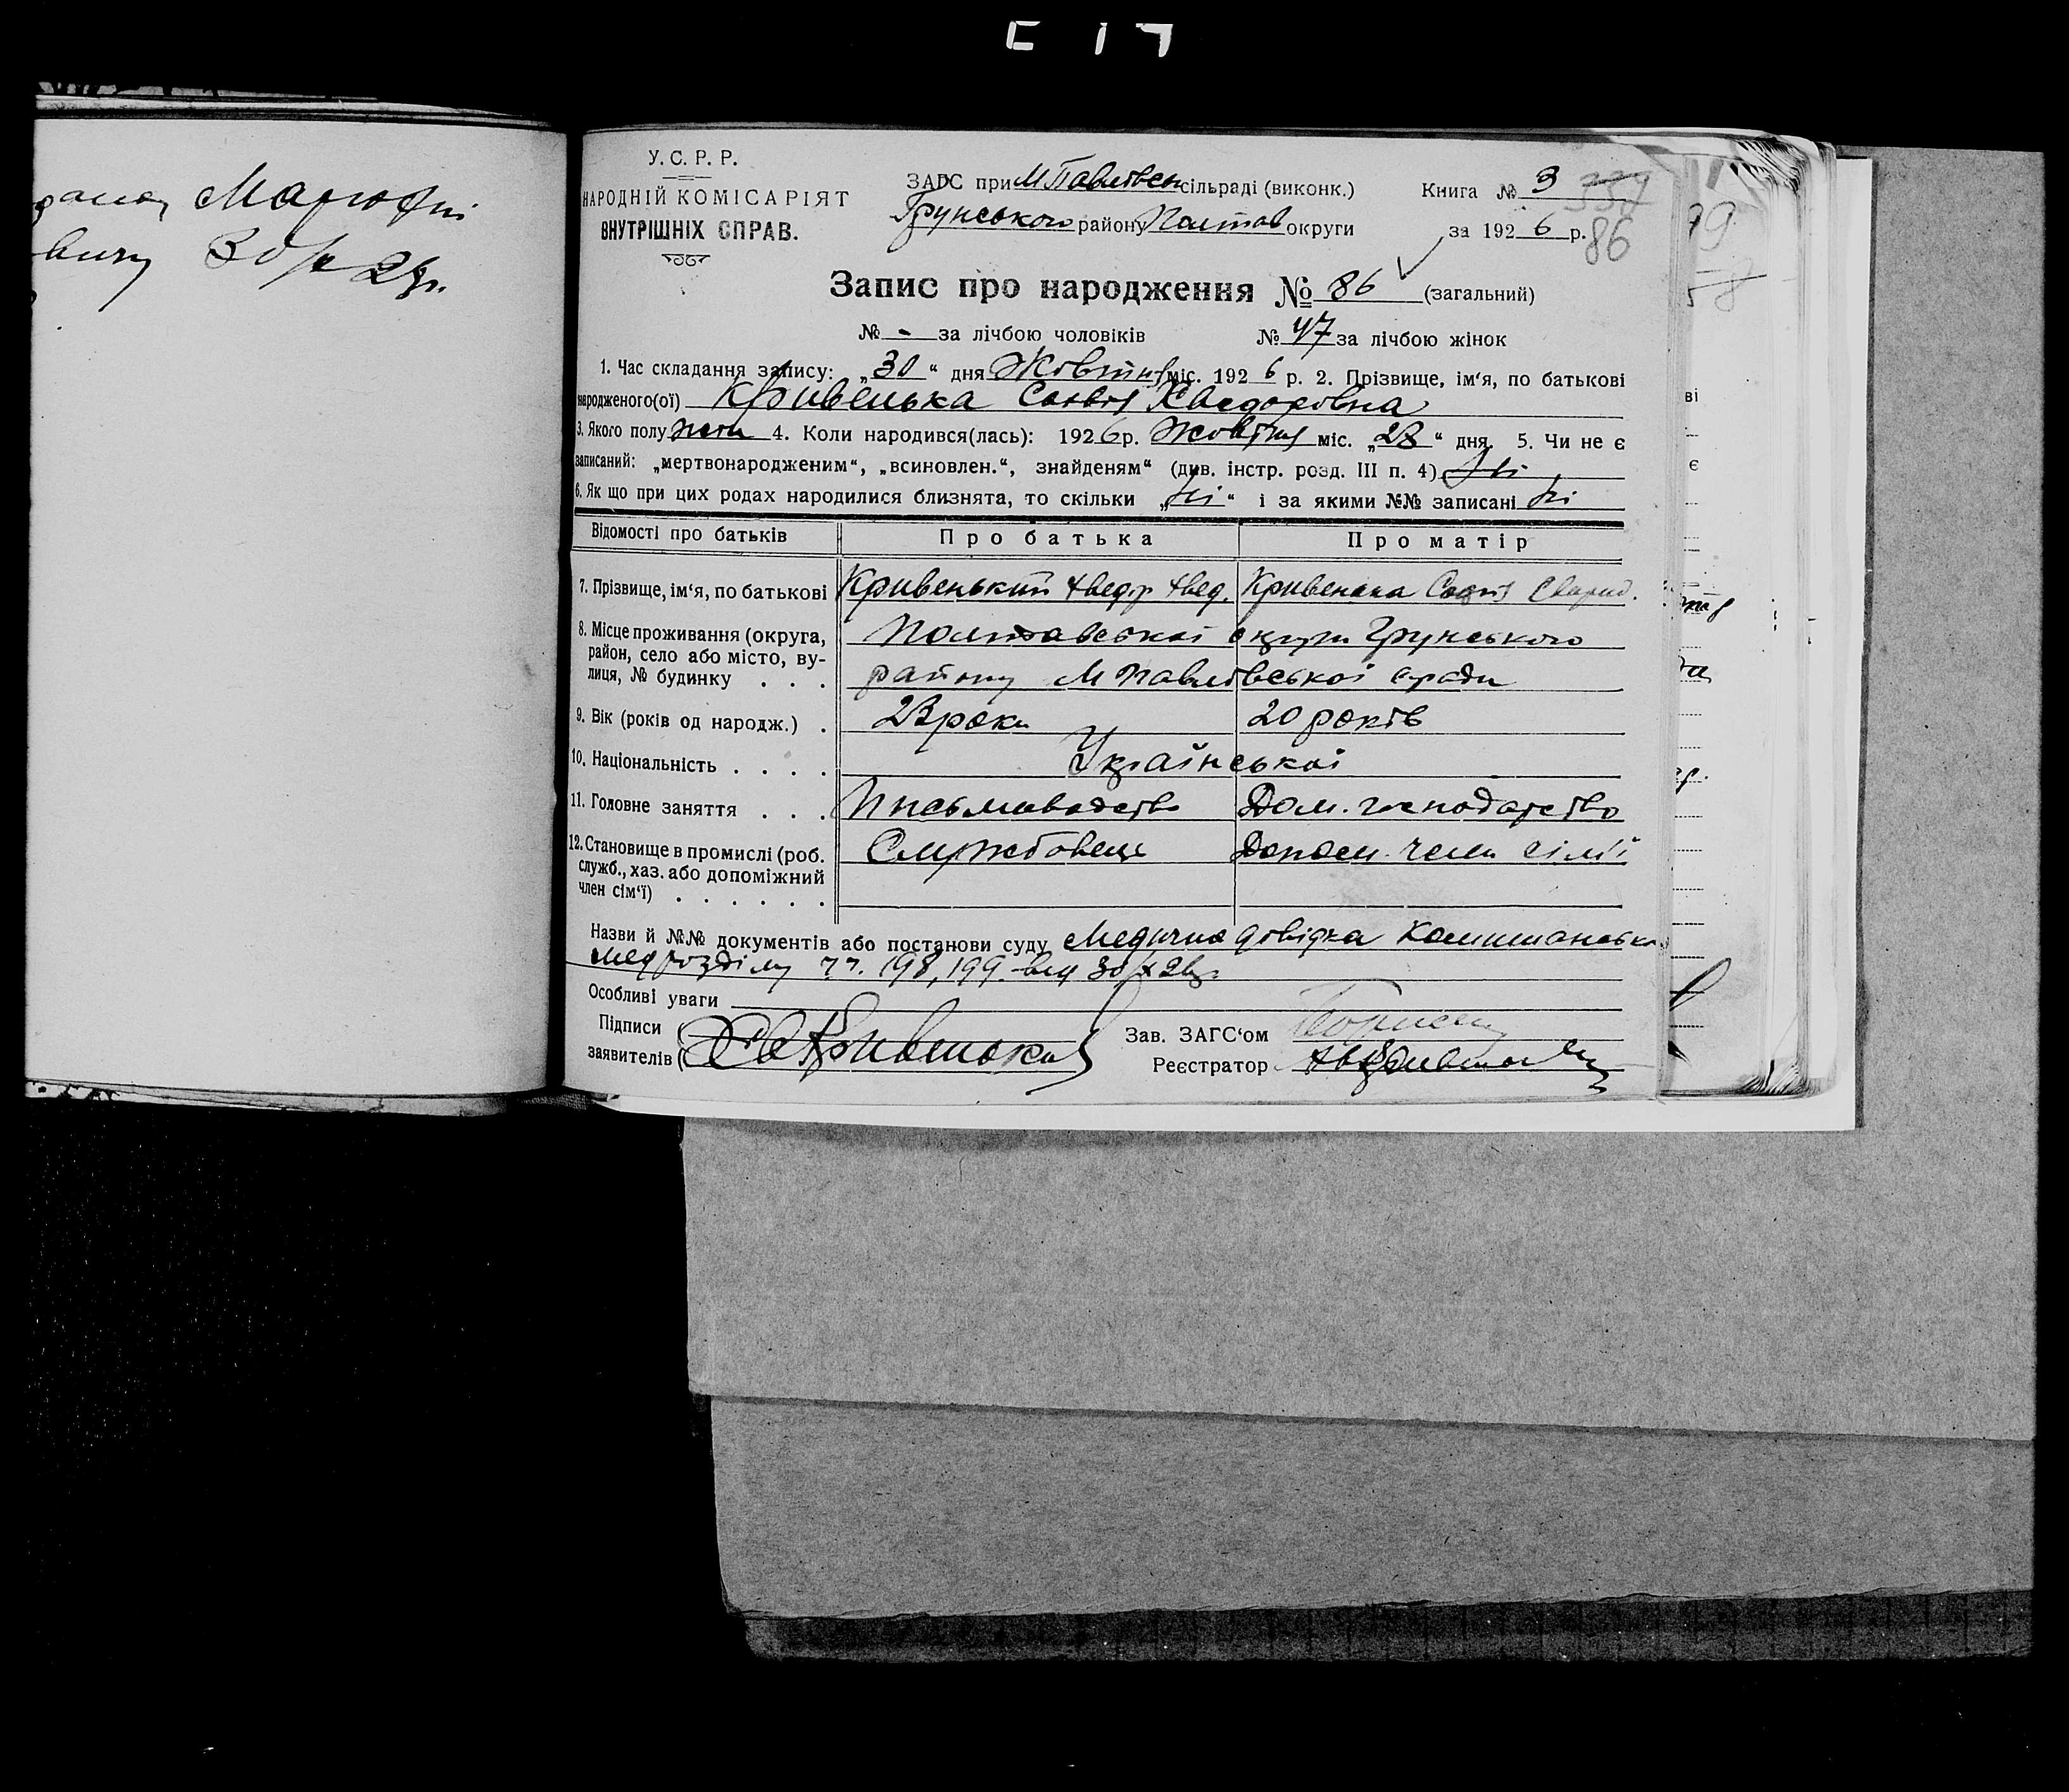 Марюфі
вичу 30/X 26р.
У. С. Р. Р.
НАРОДНІЙ КОМІСАРІЯТ
ВНУТРІШНІХ СПРАВ.
ЗАГС при М Павлівськ сільраді (виконк.)
Грунського району Полтав округи
Книга № 3
за 192 6 р.
339
86
Запис про народження № 86 (загальний)
№ - за лічбою чоловіків № 47 за лічбою жінок
1. Час складання запису: „30“ дня Жовтня міс. 192 6 р. 2. Прізвище, ім‘я, по батькові
народженого(ої) Кривенька Хведоровна
3. Якого полу жоти 4. Коли народився(лась): 192 6 р. Жовтня міс. „28“ дня. 5. Чи не є
записаний: „мертвонародженим“, „всиновлен.“, знайденям“ (див. інстр. розд. III п. 4) Ні
6. Як що при цих родах народилися близнята, то скільки „ні“ і за якими №№ записані ні
Відомості про батьків Про батька Про матір
7. Прізвище, ім‘я, по батькові Кривенький Хведр Хвед. Кривенька Софія
8. Місце проживання (округа, район, село або місто, вулиця, № будинку . . . Полтавської округи Грунського
району М Павлівської сради
9. Вік (років од народж.) . 23 роки 20 років
10. Національність . . . . Української
11. Головне заняття . . . Письмоводство Дом. господарство
12. Становище в промислі (роб. служб., хаз. або допоміжний член сім‘ї) . . . . . . Службовець Допом. член сімії
Назви й №№ документів або постанови суду Медична довідка Комишанськ
Медрозділу чч. 198, 199 від 30/X 26р.
Особливі уваги
Підписи
заявителів
Зав. ЗАГС‘ом
Реєстратор